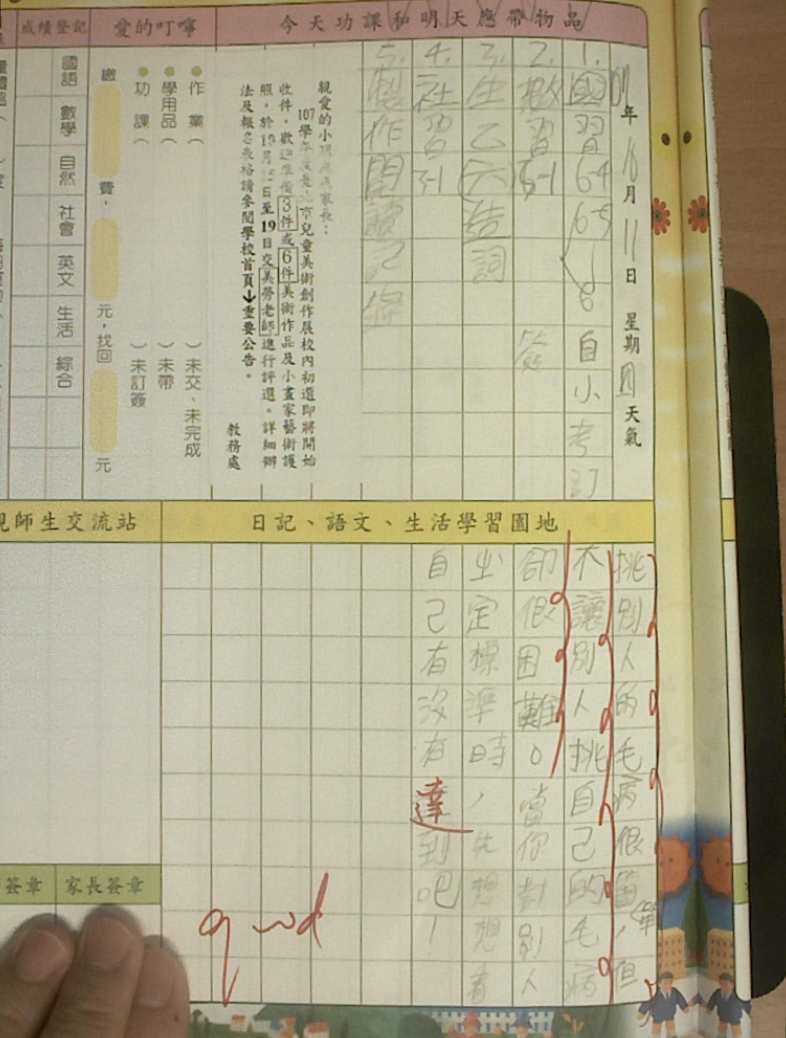 今天功課和明天應帶物品
年10月11日 星期四天氣
1. 國習6-4
6-5
自小考訂
2. 數習5-1
簽
3. 生乙六造詞
4. 社習3-1
5. 製作閱讀
親愛的小朋友及家長：
107學年度
市兒童美術創作展校內初選即將開始
收件，歡迎準備3件或6件美術作品及小畫家藝術護
照，於
日至19日交美勞老師進行評選。詳細辦
法及報名表格請參閱學校首頁↓重要公告。
教務處
愛的叮嚀
作 業（ ）未交、未完成
學用品（ ）未帶
功 課（ ）未訂簽
繳 費， 元，找回 元
成績登記
國語
數學
自然
社會
英文
生活
綜合
日記、語文、生活學習園地
挑別人的毛病很簡單，但
不讓別人挑自己的毛病
卻很困難。當你對別人
定標準時，先想想看
自己有沒有達到吧！
good
親師生交流站
簽章
家長簽章